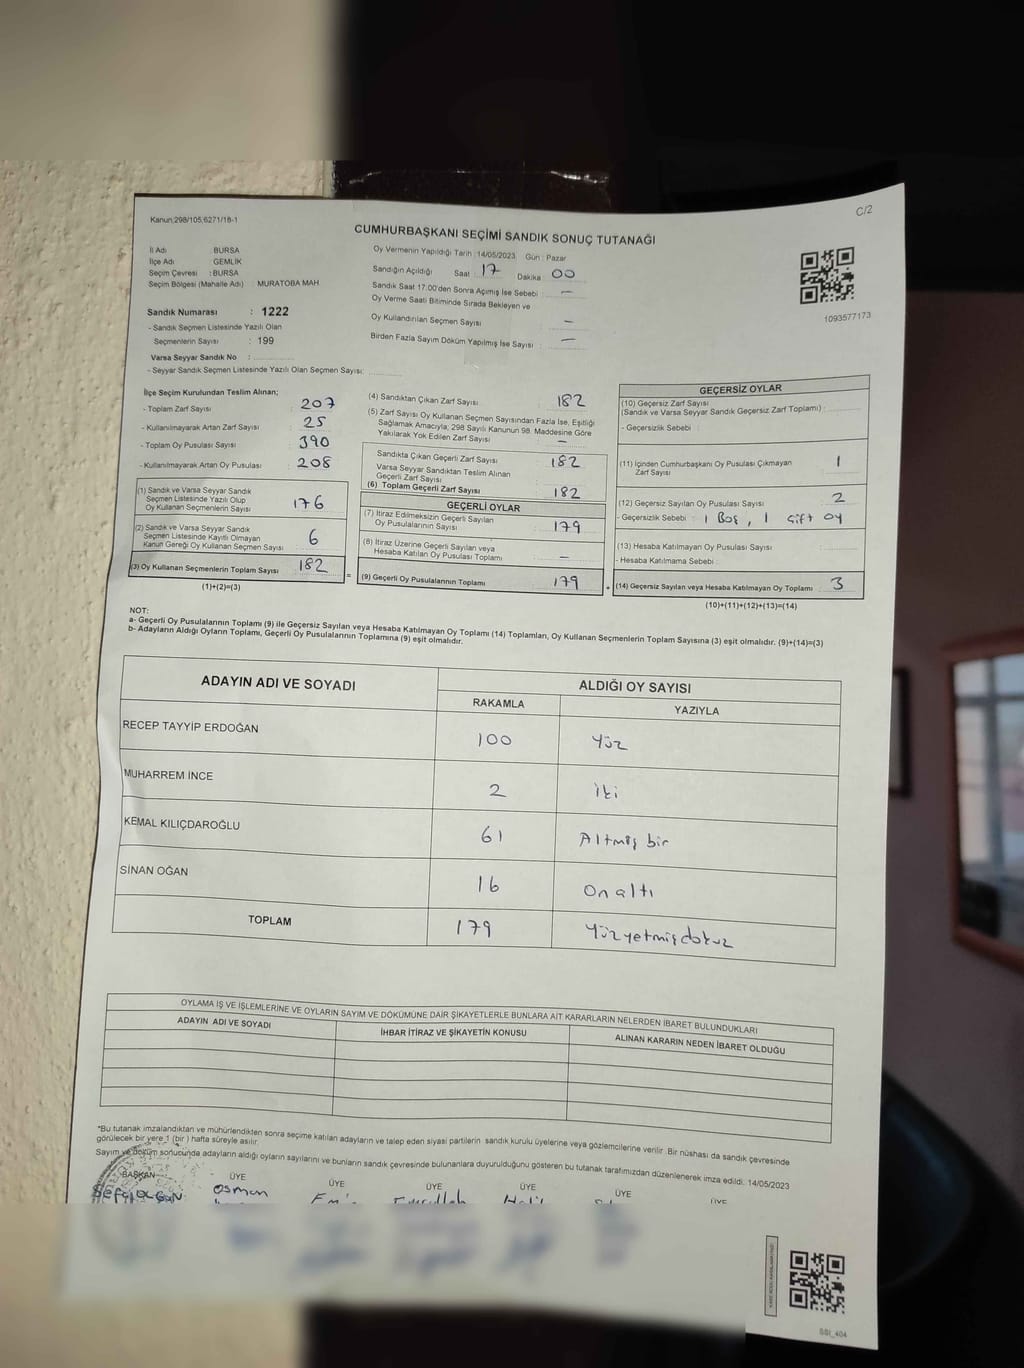 C/2
Kanun:298/105,6271/18-1
CUMHURBAŞKANI SEÇİMİ SANDIK SONUÇ TUTANAĞI
İl Adı BURSA
İlçe Adı GEMLİK
Seçim Çevresi :BURSA
Seçim Bölgesi (Mahalle Adı) : MURATOBA MAH
Sandık Numarası : 1222
- Sandık Seçmen Listesinde Yazılı Olan
Seçmenlerin Sayısı : 199
Varsa Seyyar Sandık No :
- Seyyar Sandık Seçmen Listesinde Yazılı Olan Seçmen Sayısı:
Oy Vermenin Yapıldığı Tarih :14/05/2023 Gün : Pazar
Sandığın Açıldığı Saat : 17 Dakika : 00
Sandık Saat 17:00'den Sonra Açımış İse Sebebi : -
Oy Verme Saati Bitiminde Sırada Bekleyen ve
Oy Kullandırılan Seçmen Sayısı : -
Birden Fazla Sayım Döküm Yapılmış İse Sayısı : -
1093577173
İlçe Seçim Kurulundan Teslim Alınan;
- Toplam Zarf Sayısı : 207
- Kullanılmayarak Artan Zarf Sayısı : 25
- Toplam Oy Pusulası Sayısı : 390
- Kullanılmayarak Artan Oy Pusulası : 208
(1) Sandık ve Varsa Seyyar Sandık
Seçmen Listesinde Yazılı Olup
Oy Kullanan Seçmenlerin Sayısı 176
(2) Sandık ve Varsa Seyyar Sandık
Seçmen Listesinde Kayıtlı Olmayan
Kanun Gereği Oy Kullanan Seçmen Sayısı 6
(3) Oy Kullanan Seçmenlerin Toplam Sayısı 182
(1)+(2)=(3)
(4) Sandıktan Çıkan Zarf Sayısı : 182
(5) Zarf Sayısı Oy Kullanan Seçmen Sayısından Fazla İse, Eşitliği
Sağlamak Amacıyla; 298 Sayılı Kanunun 98. Maddesine Göre
Yakılarak Yok Edilen Zarf Sayısı : -
Sandıkta Çıkan Geçerli Zarf Sayısı : 182
Varsa Seyyar Sandıktan Teslim Alınan
Geçerli Zarf Sayısı
(6) Toplam Geçerli Zarf Sayısı 182
GEÇERLİ OYLAR
(7) İtiraz Edilmeksizin Geçerli Sayılan
Oy Pusulalarının Sayısı : 179
(8) İtiraz Üzerine Geçerli Sayılan veya
Hesaba Katılan Oy Pusulası Toplamı : -
= (9) Geçerli Oy Pusulalarının Toplamı : 179
GEÇERSİZ OYLAR
(10) Geçersiz Zarf Sayısı
(Sandık ve Varsa Seyyar Sandık Geçersiz Zarf Toplamı) :
- Geçersizlik Sebebi :
(11) İçinden Cumhurbaşkanı Oy Pusulası Çıkmayan
Zarf Sayısı 1
(12) Geçersiz Sayılan Oy Pusulası Sayısı 2
- Geçersizlik Sebebi : 1 Boş, 1 Çift oy
(13) Hesaba Katılmayan Oy Pusulası Sayısı
- Hesaba Katılmama Sebebi :
+ (14) Geçersiz Sayılan veya Hesaba Katılmayan Oy Toplamı : 3
(10)+(11)+(12)+(13)=(14)
NOT:
a- Geçerli Oy Pusulalarının Toplamı (9) ile Geçersiz Sayılan veya Hesaba Katılmayan Oy Toplamı (14) Toplamları, Oy Kullanan Seçmenlerin Toplam Sayısına (3) eşit olmalıdır. (9)+(14)=(3)
b- Adayların Aldığı Oyların Toplamı, Geçerli Oy Pusulalarının Toplamına (9) eşit olmalıdır.
ADAYIN ADI VE SOYADI ALDIĞI OY SAYISI
RAKAMLA YAZIYLA
RECEP TAYYİP ERDOĞAN 100 Yüz
MUHARREM İNCE 2 İki
KEMAL KILIÇDAROĞLU 61 Altmış bir
SİNAN OĞAN 16 On altı
TOPLAM 179 Yüzyetmişdokuz
OYLAMA İŞ VE İŞLEMLERİNE VE OYLARIN SAYIM VE DÖKÜMÜNE DAİR ŞİKAYETLERLE BUNLARA AİT KARARLARIN NELERDEN İBARET BULUNDUKLARI
ADAYIN ADI VE SOYADI İHBAR İTİRAZ VE ŞİKAYETİN KONUSU ALINAN KARARIN NEDEN İBARET OLDUĞU
*Bu tutanak imzalandıktan ve mühürlendikten sonra seçime katılan adayların ve talep eden siyasi partilerin sandık kurulu üyelerine veya gözlemcilerine verilir. Bir nüshası da sandık çevresinde
görülecek bir yere 1 (bir) hafta süreyle asılır.
Sayım ve döküm sonucunda adayların aldığı oyların sayılarını ve bunların sandık çevresinde bulunanlara duyurulduğunu gösteren bu tutanak tarafımızdan düzenlenerek imza edildi. 14/05/2023
BAŞKAN ÜYE ÜYE ÜYE ÜYE ÜYE ÜYE
Osman
SSI_404